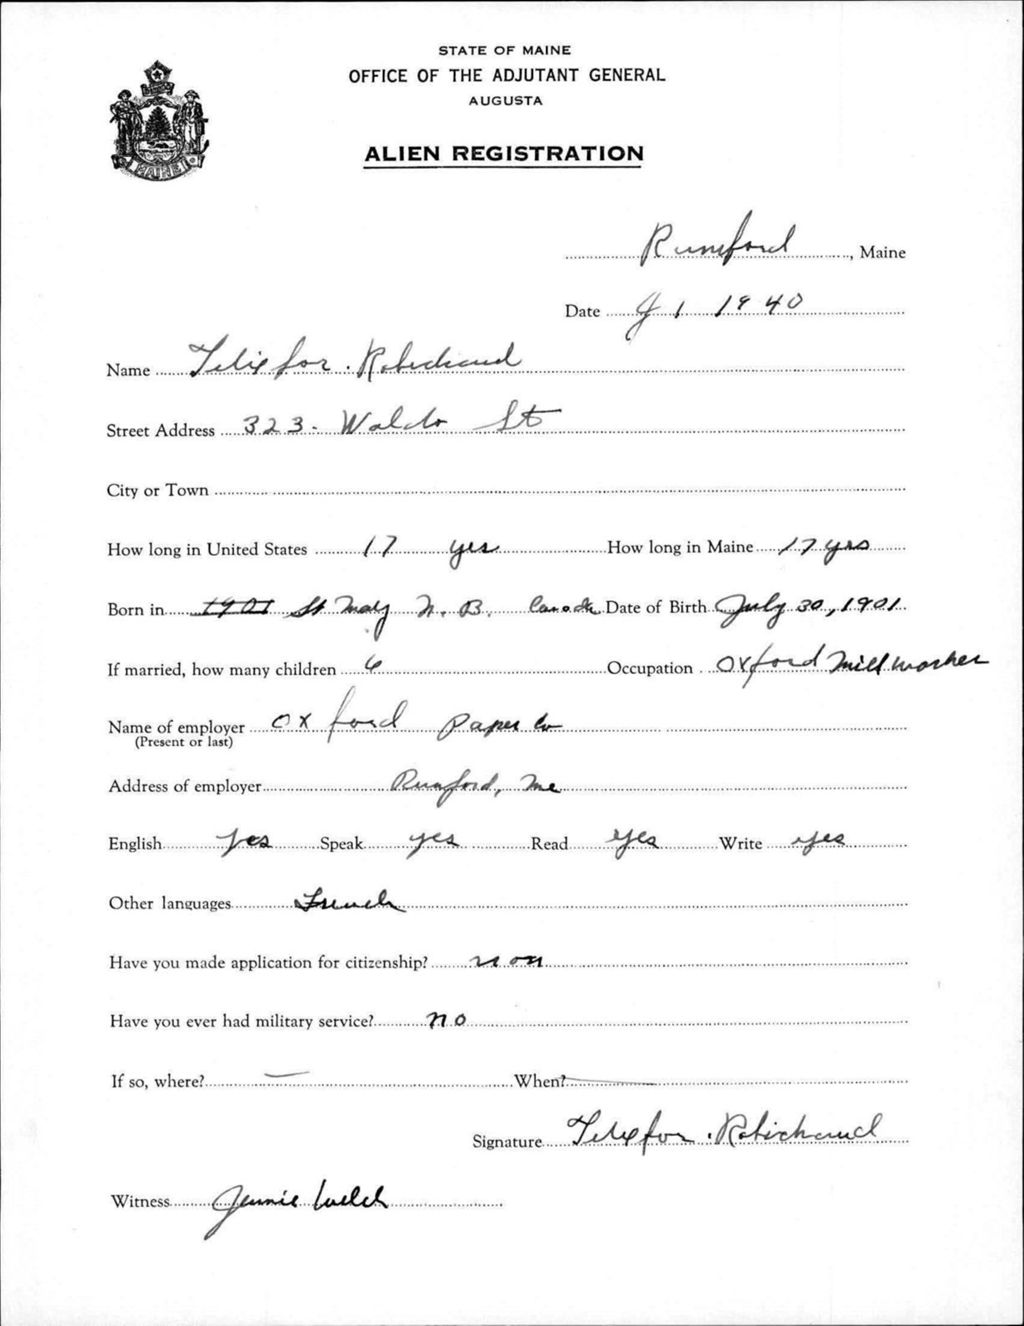 STATE OF MAINE
OFFICE OF THE ADJUTANT GENERAL
AUGUSTA
ALIEN REGISTRATION
MAINE
Rumford, Maine
Date J 1 1940
Name Telexfor Robichaud
Street Address 323 - Waldo St
City or Town
How long in United States 17 yes How long in Maine 17 yrs
Born in 1901 St Mary N. B. Canada Date of Birth July 30, 1901
If married, how many children 6 Occupation Oxford Millworker
Name of employer Oxford Paper Co
(Present or last)
Address of employer Rumford, Me
English Yes Speak yes Read Yes Write yes
Other languages French
Have you made application for citizenship? non
Have you ever had military service? no
If so, where? — When? —
Signature Telexfor Robichaud
Witness Jennie Welch